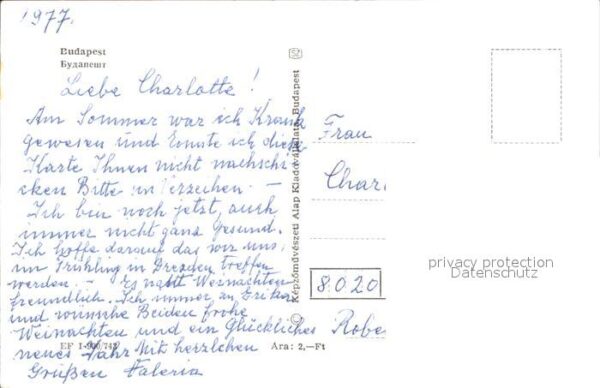 1977.
Budapest
Будапешт
Liebe Charlotte!
Am Sommer war ich Krank
gewesen und Konnte ich diese
Karte Ihnen nicht nachschi-
cken Bitte um Verzeihen. —
Ich bin noch jetzt, auch
immer nicht ganz gesund.
Ich hoffe darauf das wir uns,
im Frühling in Dresden treffen
werden. — Es naht Weinachten
freundlich. Ich immer an Erika
und wünsche Beiden frohe
Weinachten und ein Glückliches
neues Jahr Mit herzlchen
Grüßen Valeria
EF I-900/742
Ara: 2,—Ft
Képzőművészeti Alap Kiadóvállalata, Budapest
Frau
Char
8020
Robe
privacy protection
Datenschutz